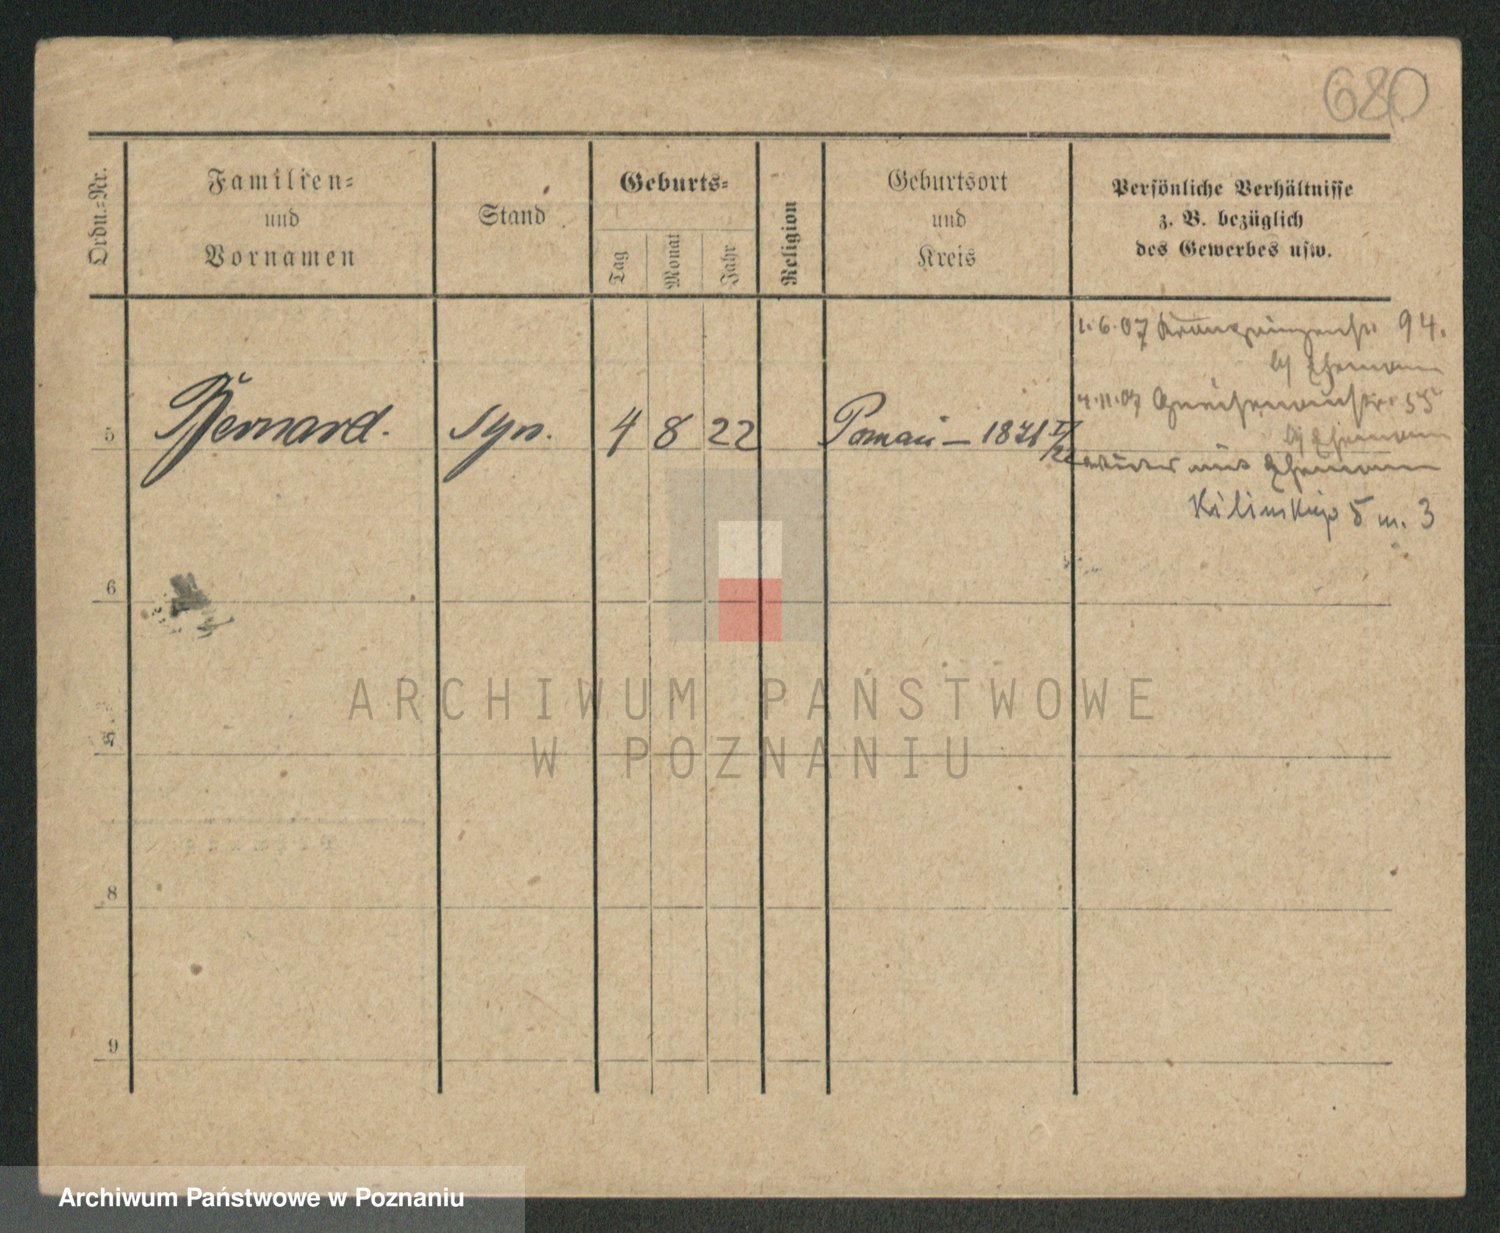 680
Ordn.-Nr.
Familien-
und
Vornamen
Stand
Geburts-
Tag
Monat
Jahr
Religion
Geburtsort
und
Kreis
Persönliche Verhältnisse
z. B. bezüglich
des Gewerbes usw.
1.6.07 Kronprinzenstr. 94.
b/ Ehemann
4.11.07 Gneisenaustr. 55
b/ Ehemann
5 Bernard. syn. 4 8 22 Poznań – 1871
wieder mit Ehemann
Kilińskiego 5 m. 3
6
7
8
9
ARCHIWUM PAŃSTWOWE
W POZNANIU
Archiwum Państwowe w Poznaniu